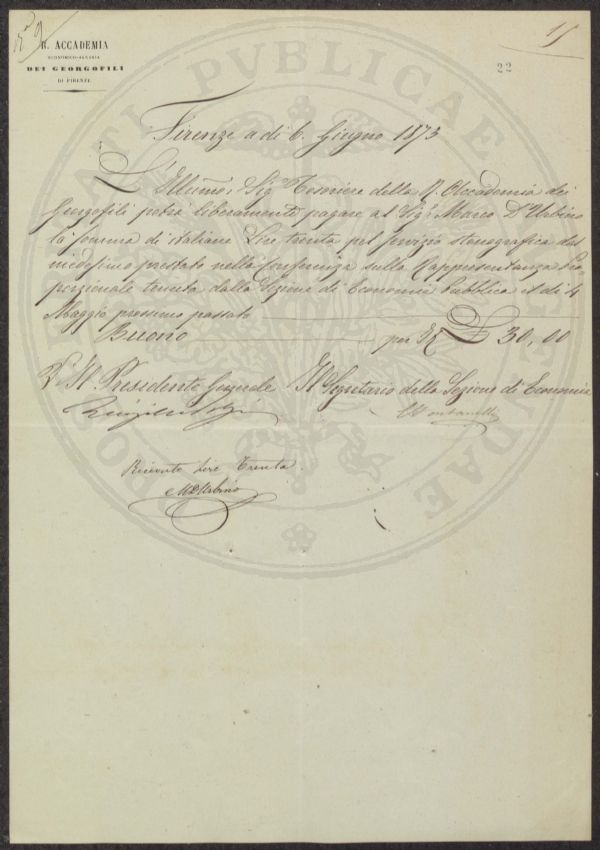 N° 9
15
R. ACCADEMIA
ECONOMICO-AGRARIA
DEI GEORGOFILI
DI FIRENZE
22
Firenze a dì 6. Giugno 1873
L'Illmo. Sigr Tesoriere della R. Accademia dei
Georgofili potrà liberamente pagare al Sigr Marco D'Urbino
la somma di italiane Lire trenta pel servizio stenografico dal
medesimo prestato nella Conferenza sulla Rappresentanza Pro
porzionale tenuta dalla Sezione di Economia Pubblica il dì 4
Maggio prossimo passato
Buono per It £ 30,00
V° Il Presidente Generale Il Segretario della Sezione di Economia
Ricevuto Lire Trenta
MDUrbino
PUBLICAE